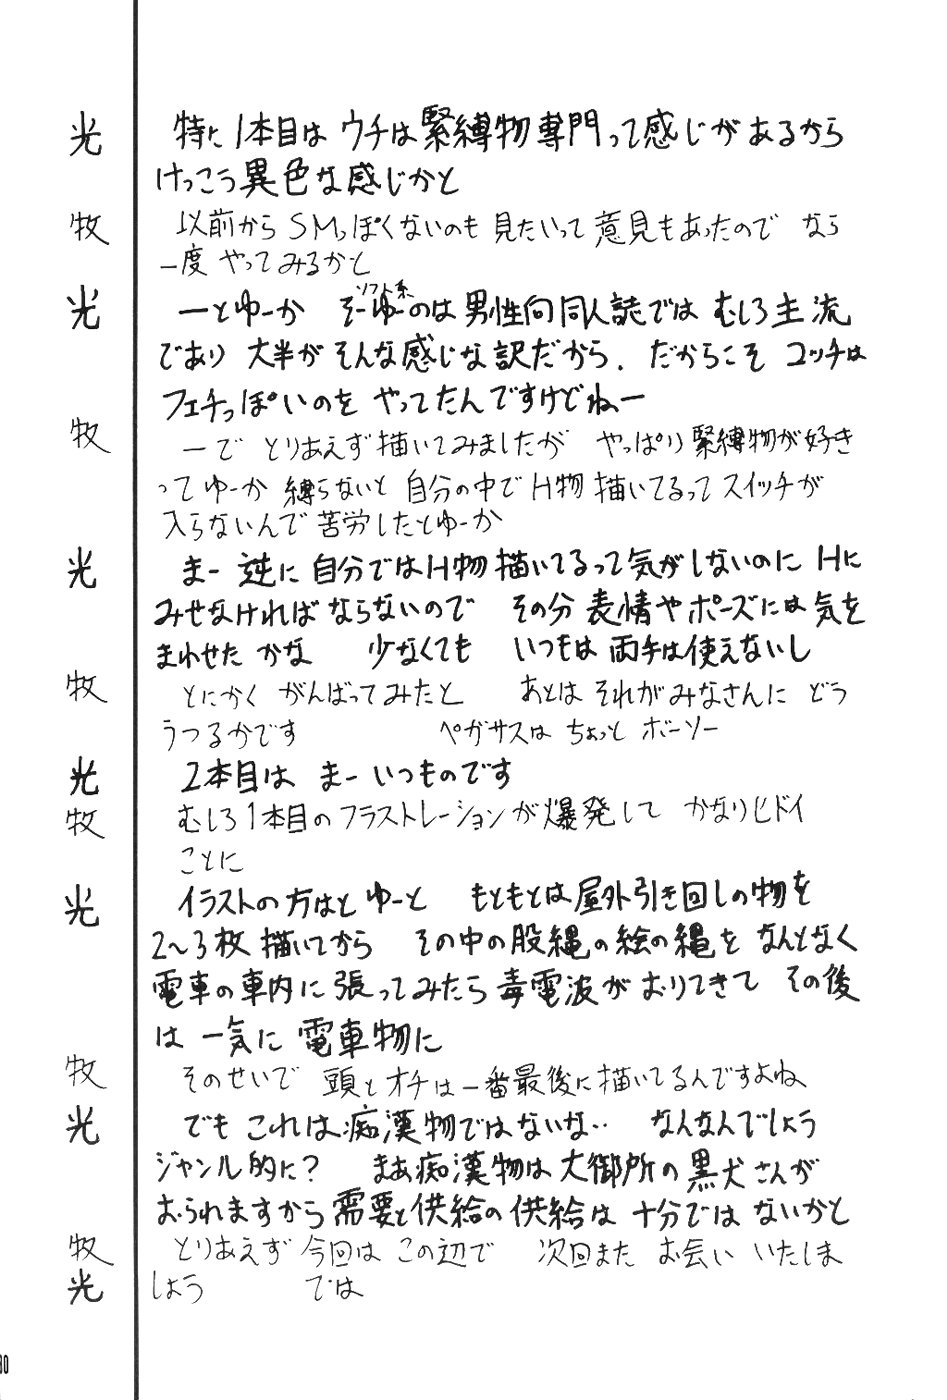 光 特に1本目は ウチは緊縛物専門って感じがあるから
けっこう異色な感じかと
牧 以前からSMっぽくないのも見たいって意見もあったので なら
一度やってみるかと
光 ーとゆーか そーゆーのは男性向同人誌では むしろ主流
ソフト系
であり 大半がそんな感じな訳だから. だからこそ コッチは
フェチっぽいのを やってたんですけどねー
牧 ーで とりあえず描いてみましたが やっぱり緊縛物が好き
ってゆーか 縛らないと 自分の中でH物描いてるってスイッチが
入らないんで苦労したとゆーか
光 まー 逆に自分ではH物描いてるって気がしないのに Hに
みせなければならないので その分 表情やポーズには気を
まわせた かな 少なくても いつもは両手は使えないし
牧 とにかく がんばってみたと あとはそれがみなさんに どう
うつるかです ペガサスは ちょっと ボーソー
光 2本目は まー いつものです
牧 むしろ1本目のフラストレーションが爆発して かなりヒドイ
ことに
光 イラストの方はと ゆーと もともとは屋外引き回しの物を
2〜3枚描いてから その中の股縄の絵の縄を なんとなく
電車の車内に張ってみたら毒電波がおりてきて その後
は 一気に 電車物に
牧 そのせいで 頭とオチは一番最後に描いてるんですよね
光 でも これは痴漢物ではないな‥ なんなんでしょう
ジャンル的に? まあ痴漢物は大御所の黒犬さんが
おられますから需要と供給の供給は十分ではないかと
牧 とりあえず今回は この辺で 次回また お会い いたしま
光 しょう では
30